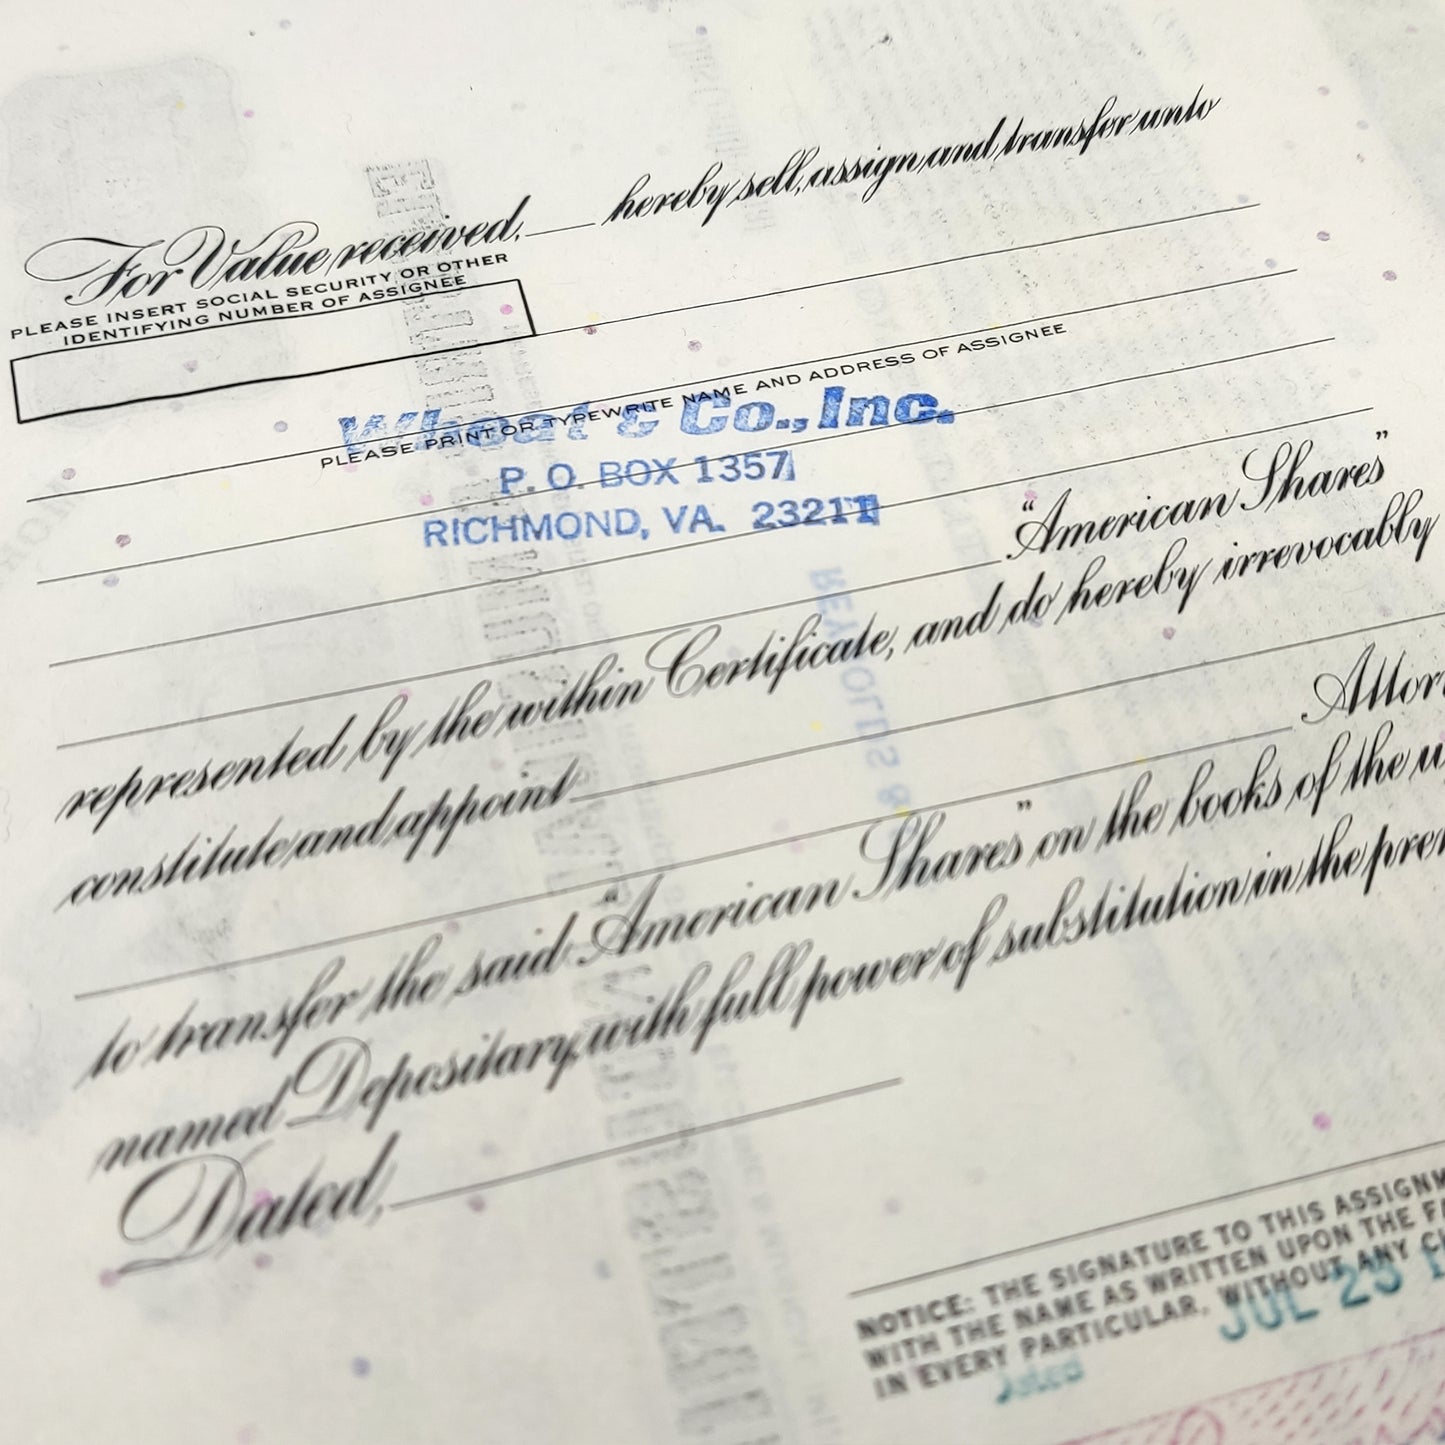 For Value received, hereby sell, assign and transfer unto
PLEASE INSERT SOCIAL SECURITY OR OTHER
IDENTIFYING NUMBER OF ASSIGNEE
PLEASE PRINT OR TYPEWRITE NAME AND ADDRESS OF ASSIGNEE
Wheat & Co., Inc.
P. O. BOX 1357
RICHMOND, VA. 23211
"American Shares"
represented by the within Certificate, and do hereby irrevocably
constitute and appoint
to transfer the said "American Shares" on the books of the
named Depositary, with full power of substitution in the
Dated,
NOTICE: THE SIGNATURE TO THIS
WITH THE NAME AS WRITTEN UPON THE
IN EVERY PARTICULAR, WITHOUT ANY
JUL 25